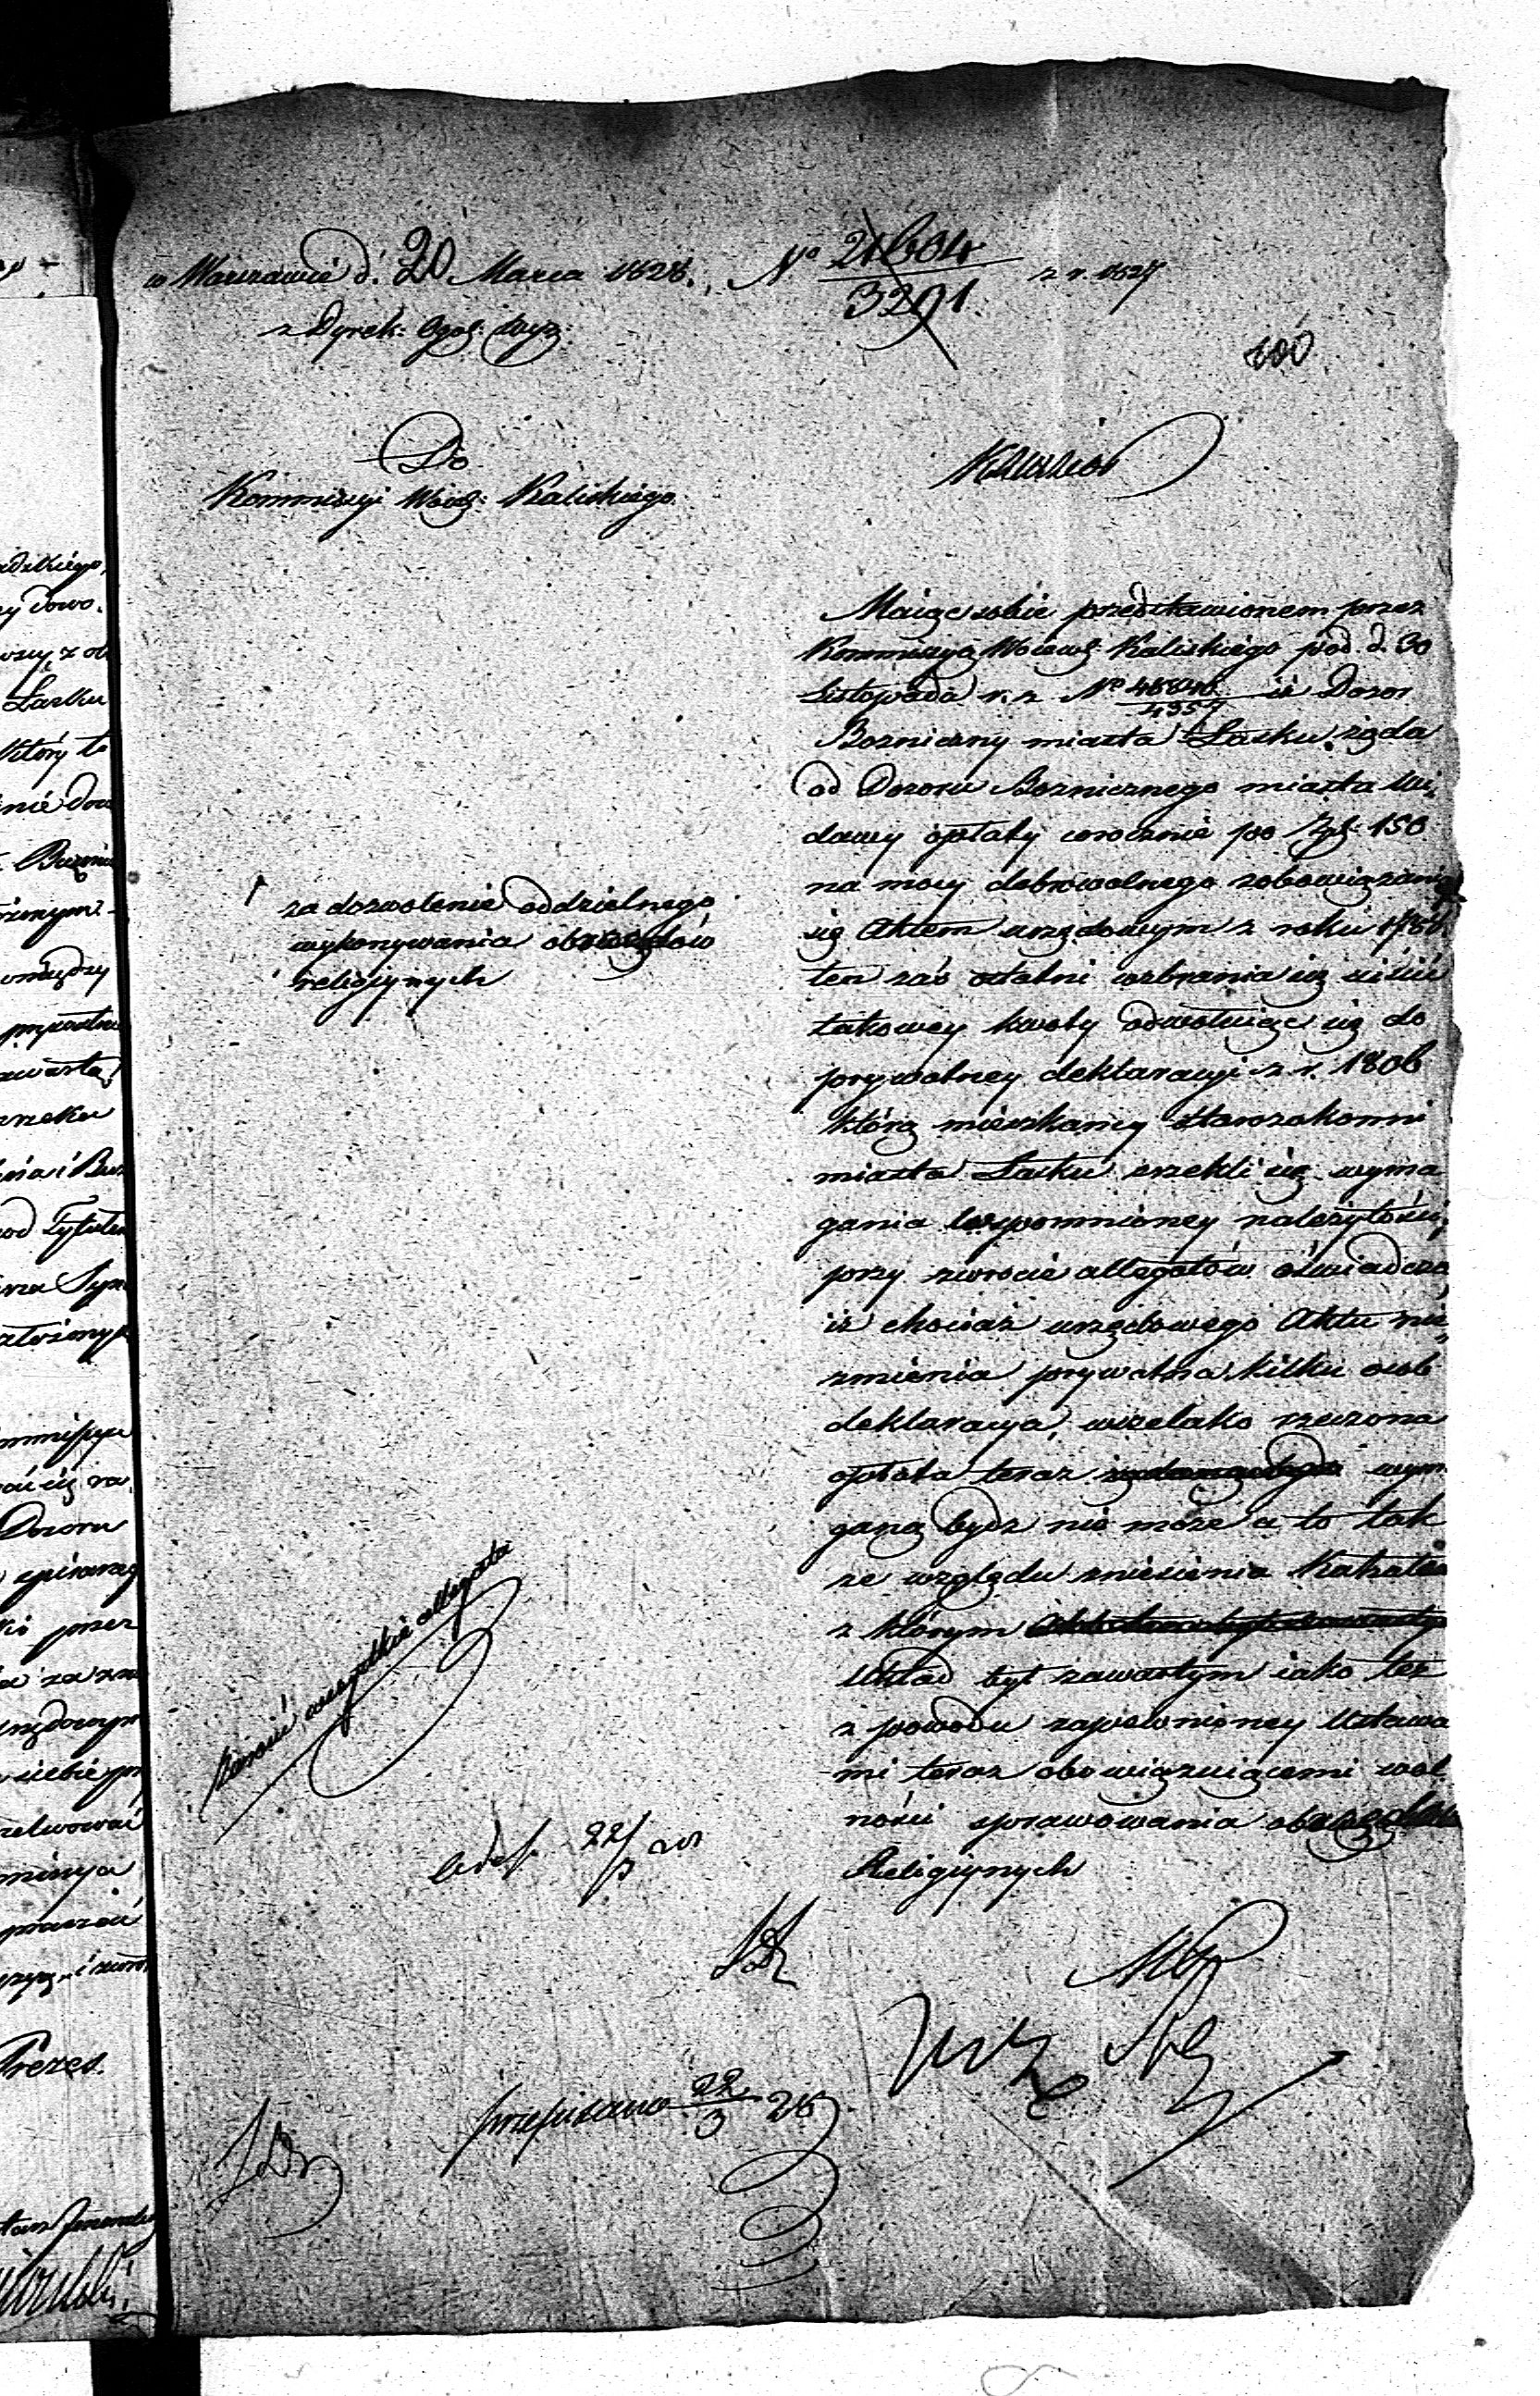 w Warszawie d. 20 Marca 1828. N° 21604/3291 z r. 1827
z Dyrek: Ogol: Wyz:
Do
Kommissyi Woje: Kaliskiego
Maiąc sobie przedstawionem przez
Kommissyą Wojewó: Kaliskiego pod d. 30
Listopada r. z. N° 48846/4357 iż Dozor
Bozniczny miasta Łasku żąda
od Dozoru Boznicznego miasta Wi-
dawy opłaty corocznie po Zpł. 150
za dozwolenie oddzielnego
wykonywania obrzędów
religijnych
na mocy dobrowolnego zobowiązania
się Aktem urzędowym z roku
ten zaś ostatni wzbrania się uiścić
takowey kwoty odwołuiąc się do
prywatney deklaracyi z r. 1806
którą mieszkańcy starozakonni
miasta Łasku zrzekli się wyma
gania wspomnioney należytości,
przy zwrocie allegatów oświadcza
iż chociaż urzędowego Aktu nie
zmienia prywatna kilku osob
deklaracya, wszelako rzeczona
opłata teraz wyma
ganą bydz nie może a to tak
ze względu zniesienia Kahałów
z którym
Układ był zawartym iako też
z powodu zapewnioney Ustawa
mi teraz obowiązuiącemi wol
ności sprawowania obrzędów
Religijnych
zwrócić wszystkie allegata
22/3
przepisano 22/3 28